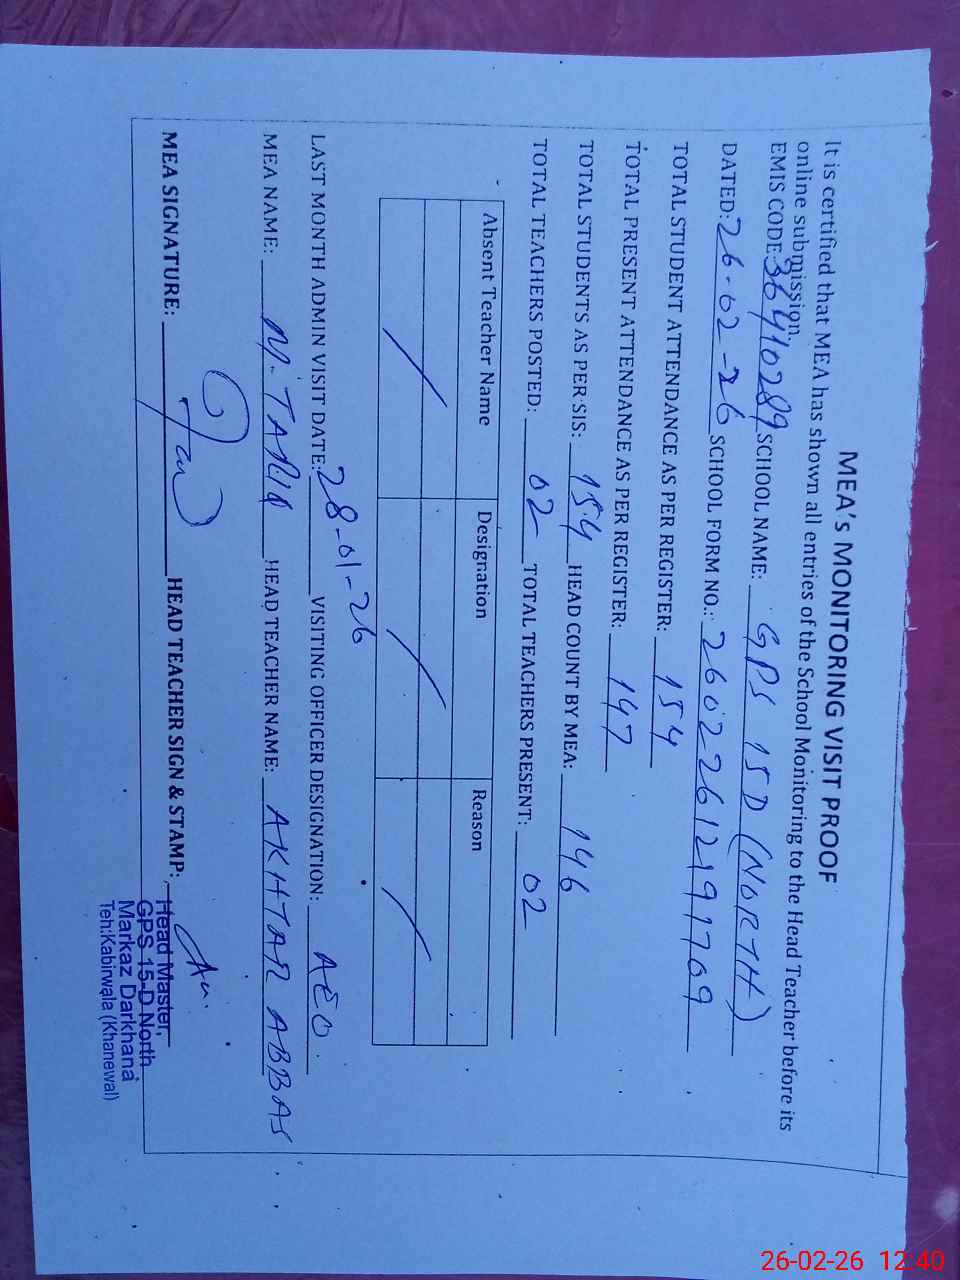 MEA's MONITORING VISIT PROOF
It is certified that MEA has shown all entries of the School Monitoring to the Head Teacher before its
online submission.
EMIS CODE: 36410289 SCHOOL NAME: GPS 15D (NORTH)
DATED: 26-02-26 SCHOOL FORM NO.: 26022612191709
TOTAL STUDENT ATTENDANCE AS PER REGISTER: 154
TOTAL PRESENT ATTENDANCE AS PER REGISTER: 147
TOTAL STUDENTS AS PER SIS: 154 HEAD COUNT BY MEA: 146
TOTAL TEACHERS POSTED: 02 TOTAL TEACHERS PRESENT: 02
Absent Teacher Name Designation Reason
LAST MONTH ADMIN VISIT DATE: 28-01-26 VISITING OFFICER DESIGNATION: AEO.
MEA NAME: M. TARIQ HEAD TEACHER NAME: AKHTAR ABBAS
MEA SIGNATURE: HEAD TEACHER SIGN & STAMP:
Head Master,
GPS 15-D North
Markaz Darkhana
Teh:Kabirwala (Khanewal)
26-02-26 12:40